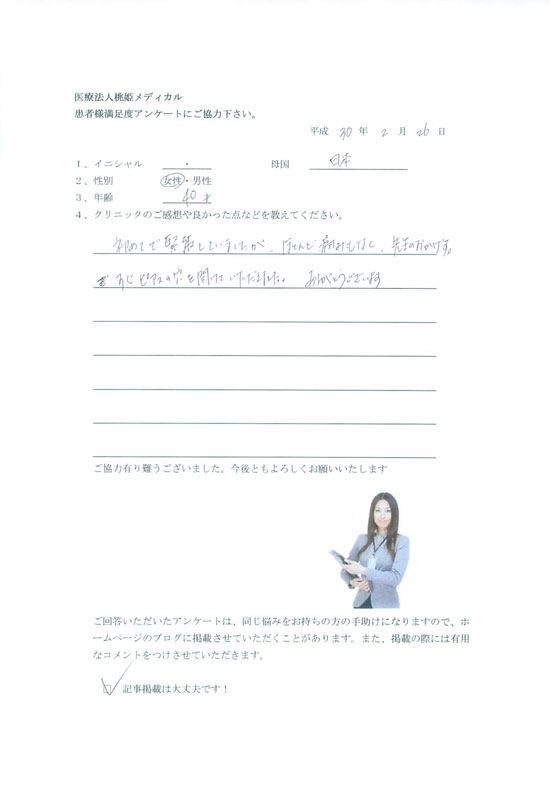 医療法人桃姫メディカル
患者様満足度アンケートにご協力下さい。
平成 30 年 2 月 26 日
1、イニシャル ・ 母国 日本
2、性別 女性・男性
3、年齢 40 才
4、クリニックのご感想や良かった点などを教えてください。
初めてで緊張していましたが、ほとんど痛みもなく、先生のおかげで
ピアスの穴を開けていただきました。 ありがとうございます
ご協力有り難うございました。今後ともよろしくお願いいたします
ご回答いただいたアンケートは、同じ悩みをお持ちの方の手助けになりますので、ホ
ームページのブログに掲載させていただくことがあります。また、掲載の際には有用
なコメントをつけさせていただきます。
記事掲載は大丈夫です！